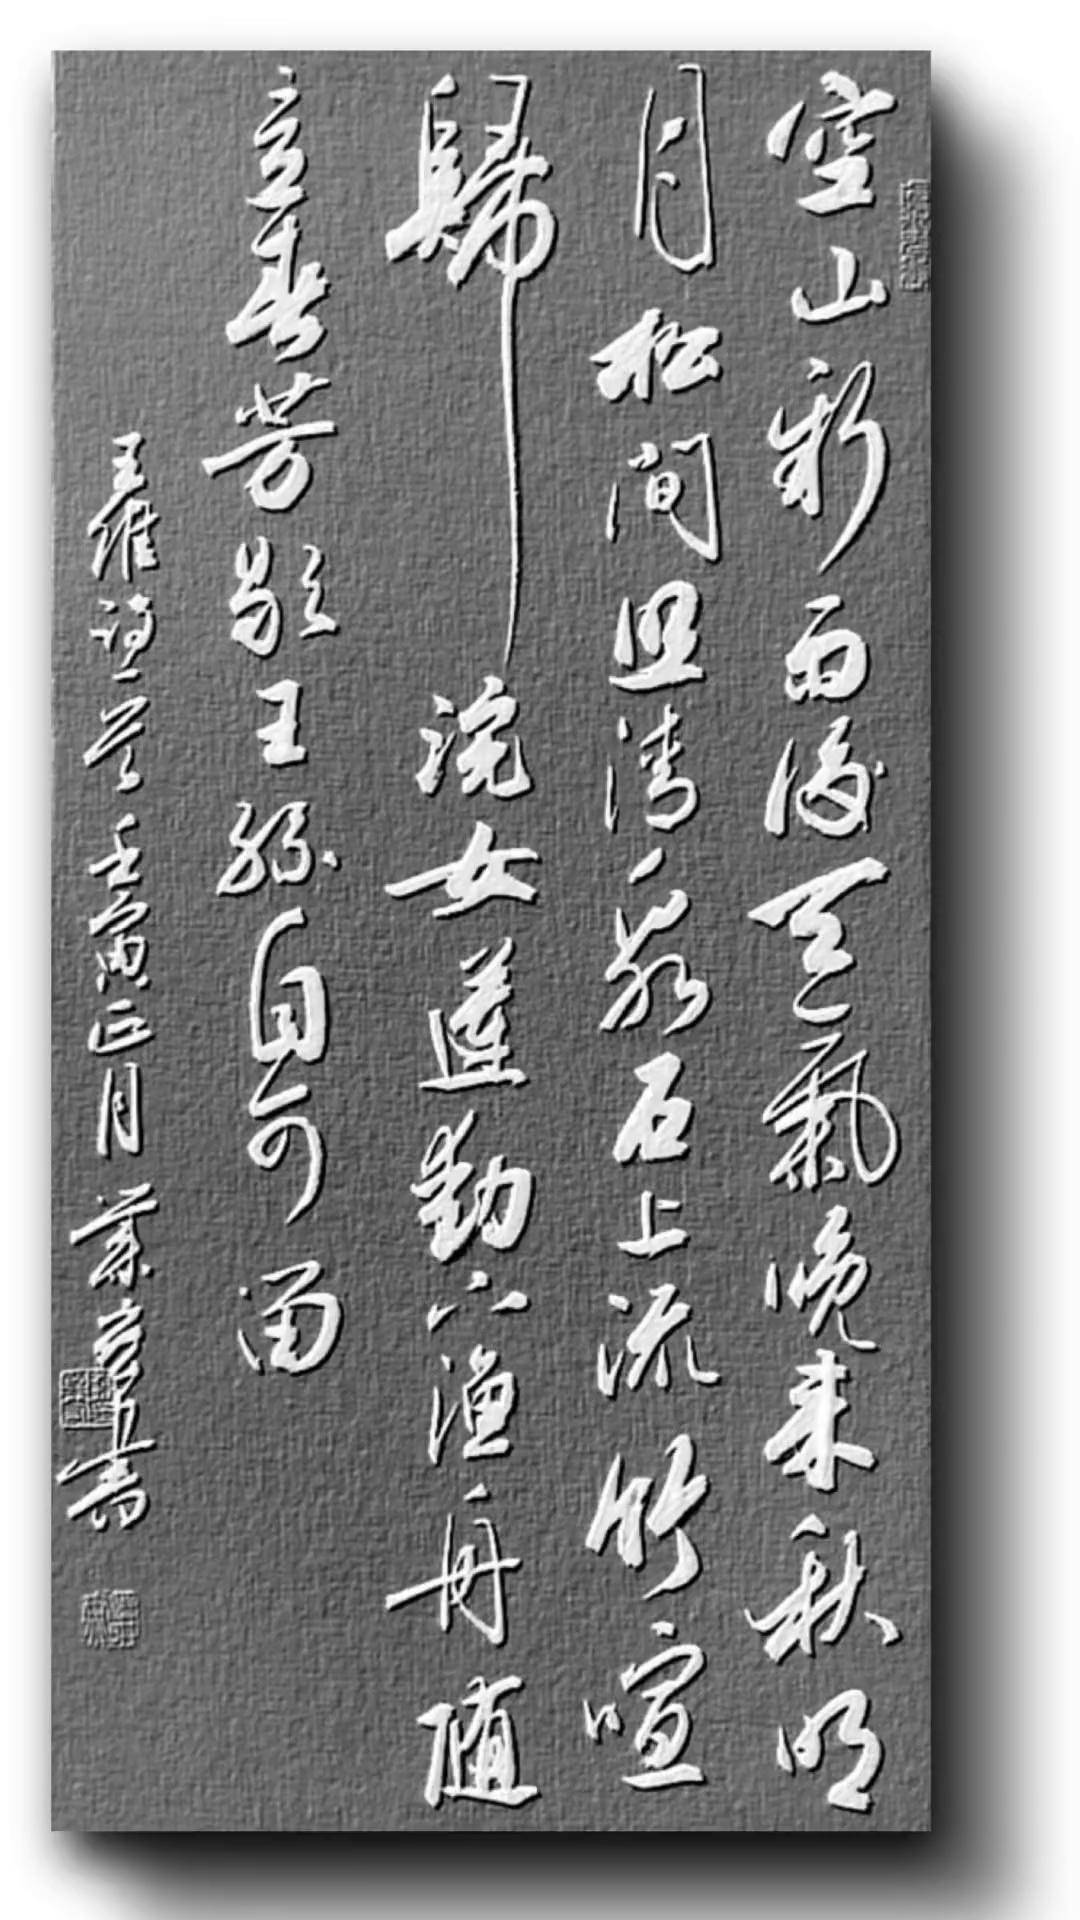 空山新雨後天氣晚來秋明
月松間照清泉石上流竹喧
歸浣女蓮動下漁舟隨
意春芳歇王孫自可留
王維詩一首壬寅正月葉書